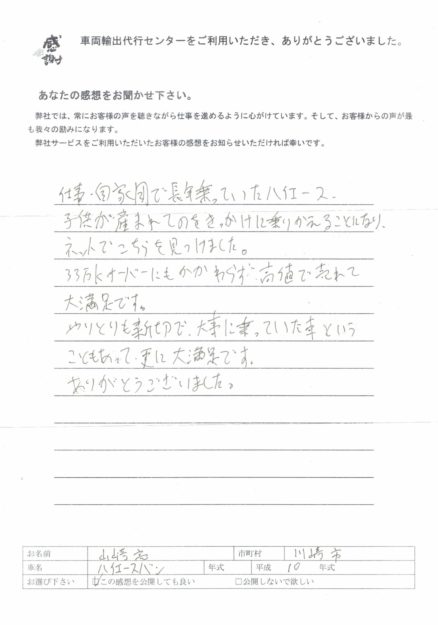 感謝
車両輸出代行センターをご利用いただき、ありがとうございました。
あなたの感想をお聞かせ下さい。
弊社では、常にお客様の声を聴きながら仕事を進めるように心がけています。そして、お客様からの声が最
も我々の励みになります。
弊社サービスをご利用いただいたお客様の感想をお知らせいただければ幸いです。
仕事・自家用で長年乗っていたハイエース。
子供が産まれてのをきっかけに乗りかえることになり、
ネットでこちらを見つけました。
33万kオーバーにもかかわらず高値で売れて
大満足です。
やりとりも親切で、大事に乗っていた車という
こともあって、更に大満足です。
ありがとうございました。
お名前 山崎 市町村 川崎市
車名 ハイエースバン 年式 平成 10 年式
お選び下さい ☑この感想を公開しても良い □公開しないで欲しい